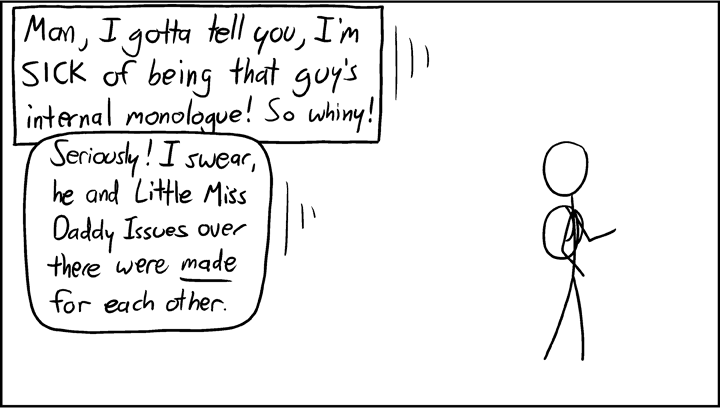 Man, I gotta tell you, I'm
SICK of being that guy's
internal monologue! So whiny!
Seriously! I swear,
he and Little Miss
Daddy Issues over
there were made
for each other.